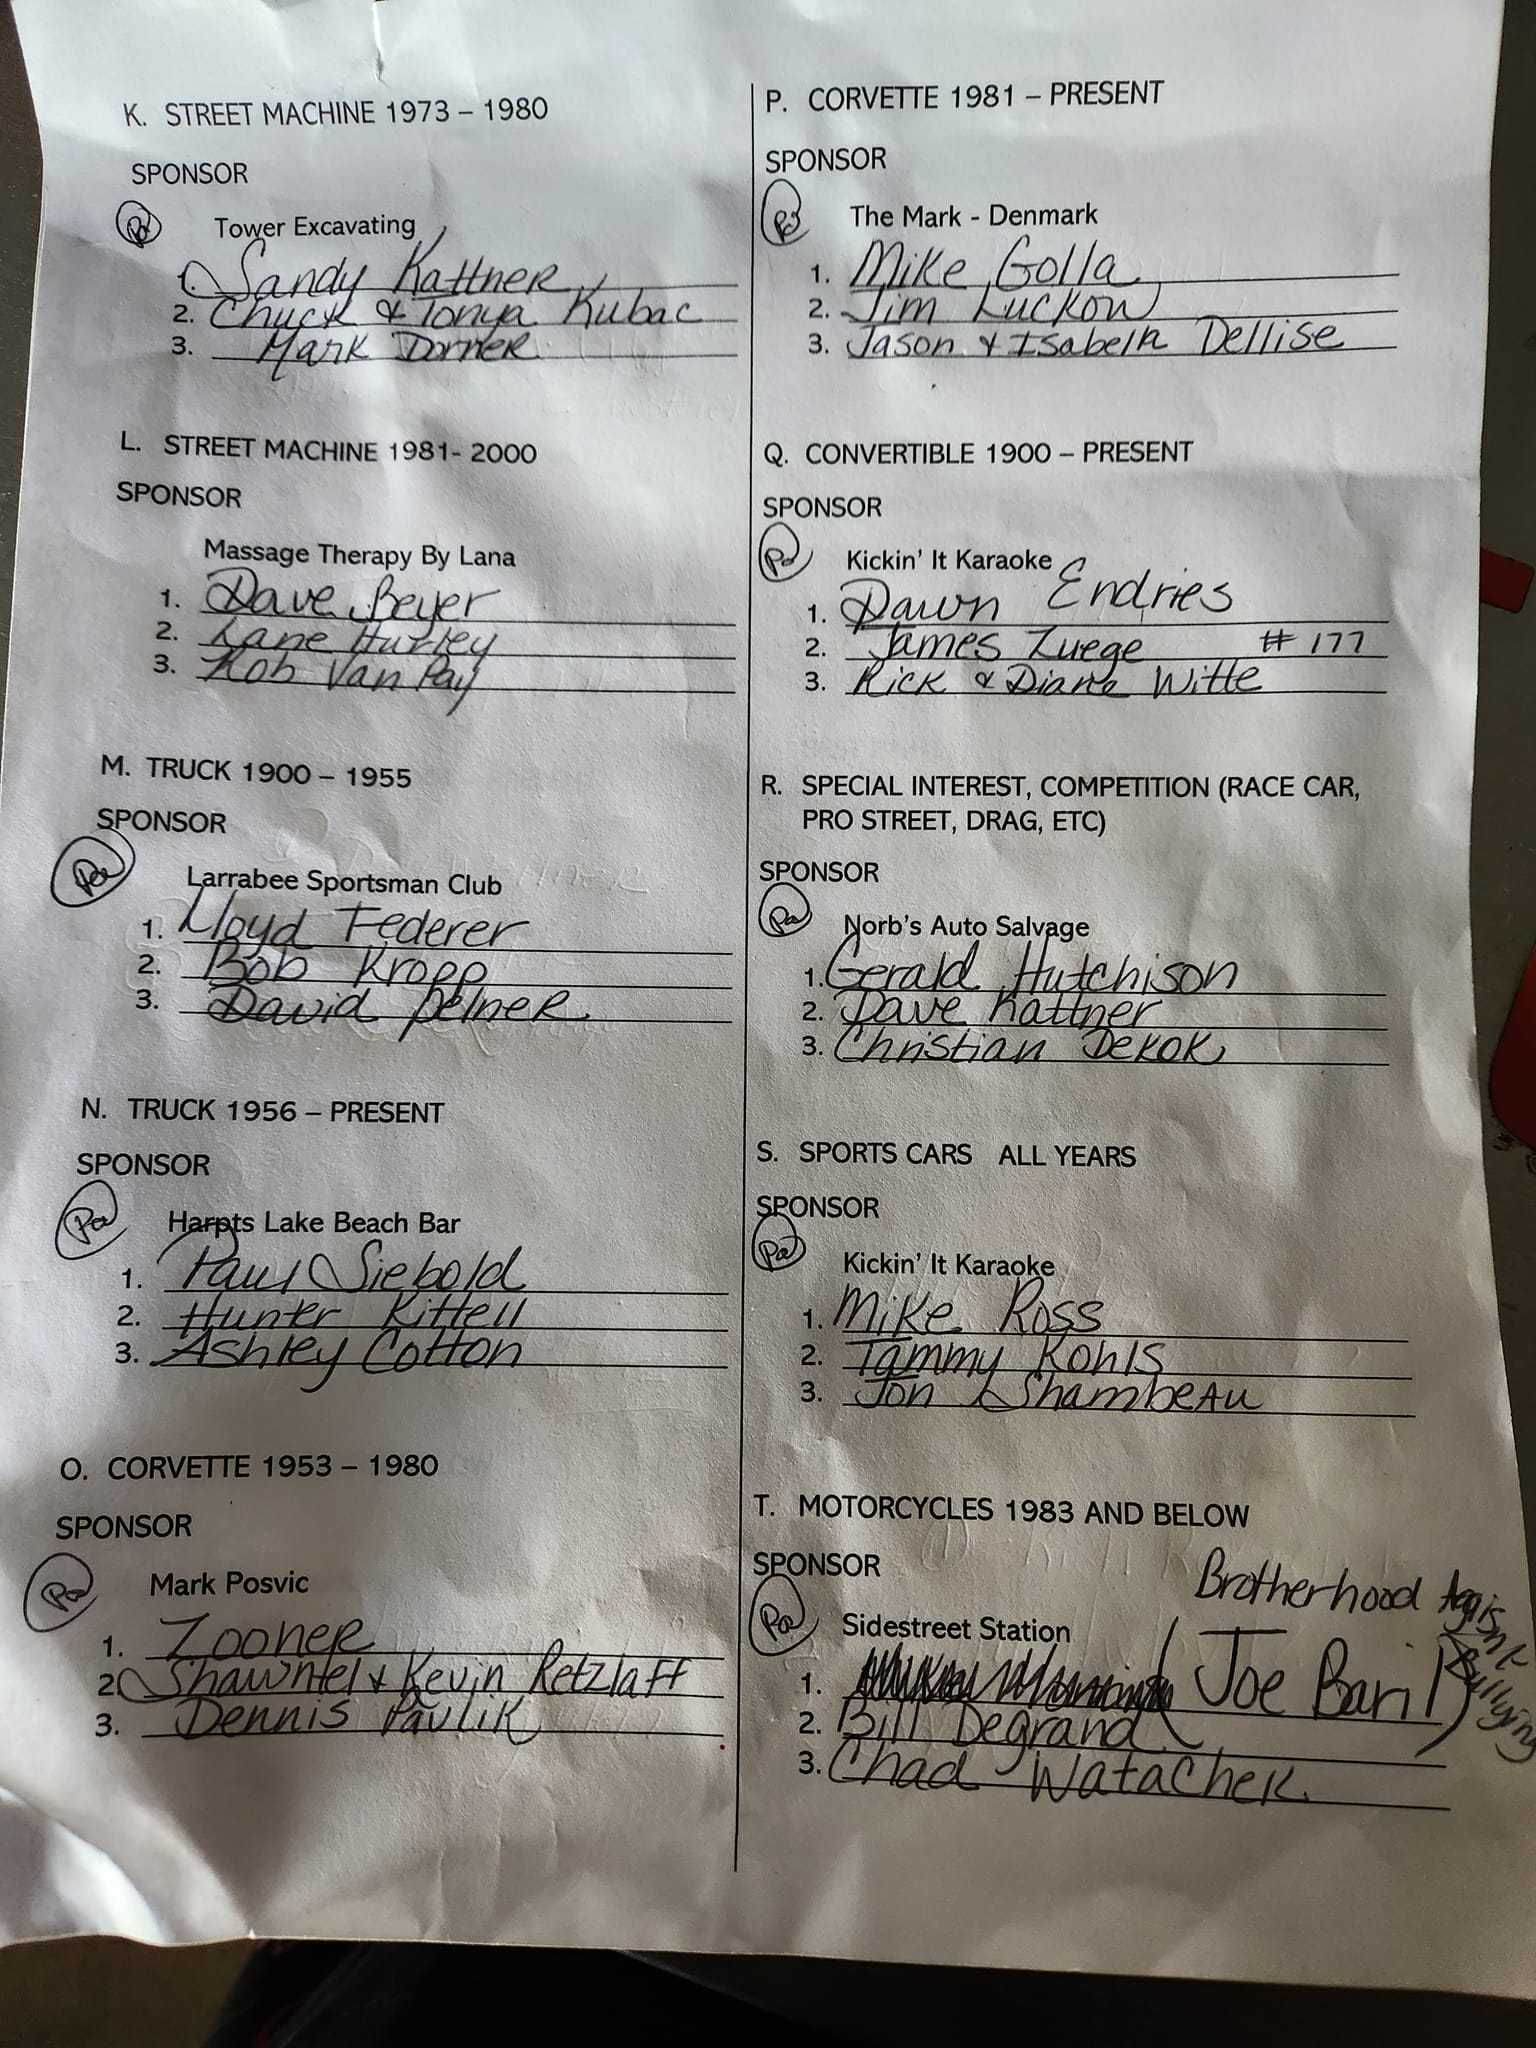 K. STREET MACHINE 1973 – 1980
SPONSOR
Pd Tower Excavating
1. Sandy Kattner
2. Chuck & Tonya Kubac
3. Mark Dorner
L. STREET MACHINE 1981- 2000
SPONSOR
Massage Therapy By Lana
1. Dave Beyer
2. Lane Hurley
3. Rob Van Pay
M. TRUCK 1900 – 1955
SPONSOR
Pd Larrabee Sportsman Club
1. Lloyd Federer
2. Bob Kropp
3. David Pelner
N. TRUCK 1956 – PRESENT
SPONSOR
Pd Harpts Lake Beach Bar
1. Paul Siebold
2. Hunter Kittell
3. Ashley Cotton
O. CORVETTE 1953 – 1980
SPONSOR
Pd Mark Posvic
1. Zooner
2. Shawntel & Kevin Retzlaff
3. Dennis Pavlik
P. CORVETTE 1981 – PRESENT
SPONSOR
Pd The Mark - Denmark
1. Mike Golla
2. Jim Luckow
3. Jason & Isabella Dellise
Q. CONVERTIBLE 1900 – PRESENT
SPONSOR
Pd Kickin' It Karaoke
1. Dawn Endries
2. James Zuege # 177
3. Rick & Diane Witte
R. SPECIAL INTEREST, COMPETITION (RACE CAR,
PRO STREET, DRAG, ETC)
SPONSOR
Pd Norb's Auto Salvage
1. Gerald Hutchison
2. Dave Kattner
3. Christian DeKok
S. SPORTS CARS ALL YEARS
SPONSOR
Pd Kickin' It Karaoke
1. Mike Ross
2. Tammy Kohls
3. Jon Shambeau
T. MOTORCYCLES 1983 AND BELOW
SPONSOR
Brotherhood Agisnt Bullying
Pd Sidestreet Station
1. (Joe Baril)
2. Bill Degrand
3. Chad Watachek